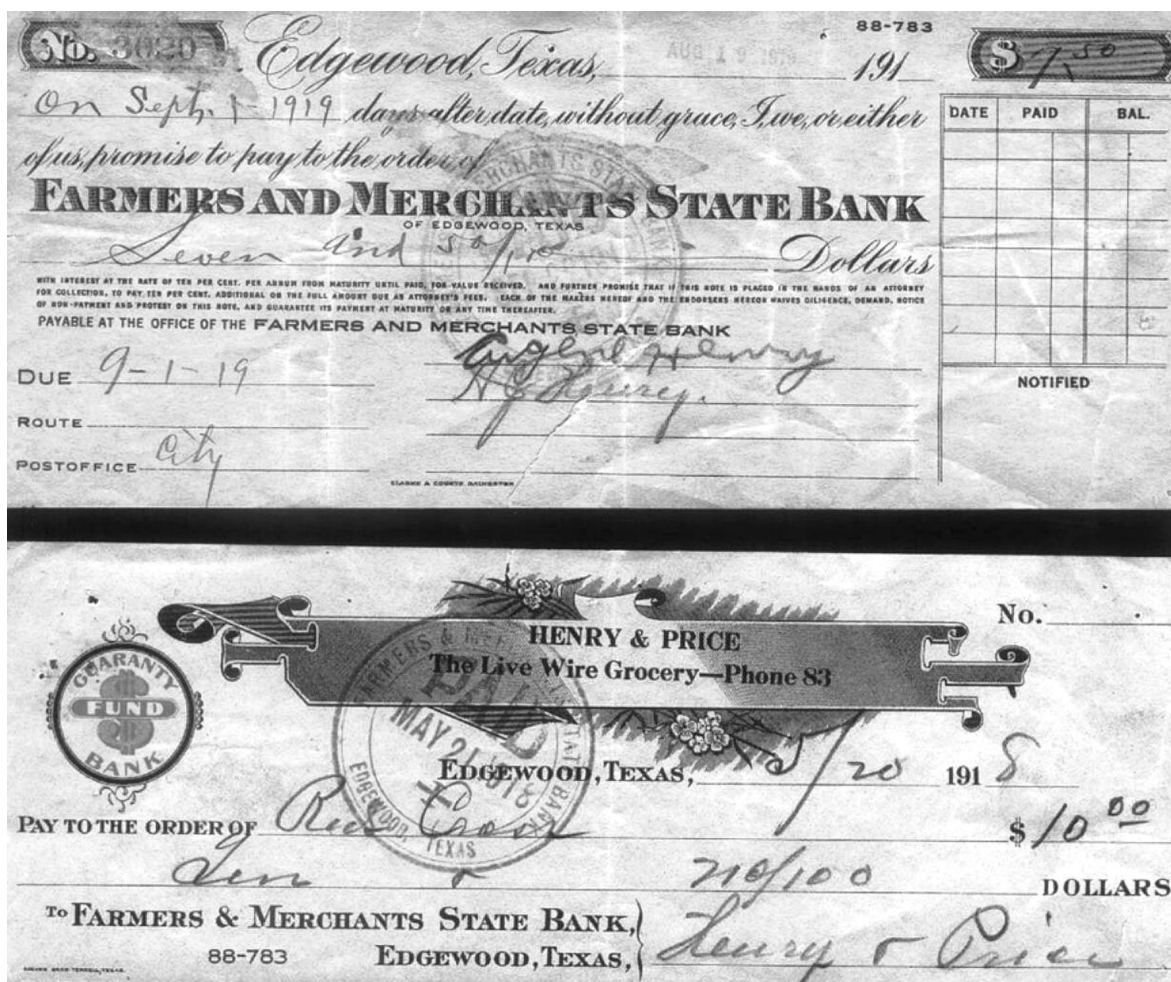 No. 3020
Edgewood, Texas, AUG 1 9 1919 191
88-783
$ 7.50
On Sept. 1 1919 days after date, without grace, I, we, or either
of us, promise to pay to the order of
FARMERS AND MERCHANTS STATE BANK
OF EDGEWOOD, TEXAS
Seven and 50/100 Dollars
WITH INTEREST AT THE RATE OF TEN PER CENT. PER ANNUM FROM MATURITY UNTIL PAID, FOR VALUE RECEIVED. AND FURTHER PROMISE THAT IF THIS NOTE IS PLACED IN THE HANDS OF AN ATTORNEY
FOR COLLECTION, TO PAY TEN PER CENT. ADDITIONAL ON THE FULL AMOUNT DUE AS ATTORNEY'S FEES. EACH OF THE MAKERS HEREOF AND THE ENDORSERS HEREON WAIVES DILIGENCE, DEMAND, NOTICE
OF NON-PAYMENT AND PROTEST ON THIS NOTE, AND GUARANTEE ITS PAYMENT AT MATURITY OR ANY TIME THEREAFTER.
PAYABLE AT THE OFFICE OF THE FARMERS AND MERCHANTS STATE BANK
Eugene Henry
DUE 9-1-19
H E Henry.
ROUTE
POSTOFFICE City
DATE PAID BAL.
NOTIFIED
HENRY & PRICE
The Live Wire Grocery—Phone 83
No.
GUARANTY
FUND
BANK
FARMERS & MERCHANTS STATE BANK
PAID
MAY 21 1918
EDGEWOOD, TEXAS
EDGEWOOD, TEXAS, 5/20 1918
PAY TO THE ORDER OF Red Cross $ 10 00
Ten & no/100 DOLLARS
To FARMERS & MERCHANTS STATE BANK,
88-783 EDGEWOOD, TEXAS,
Henry & Price